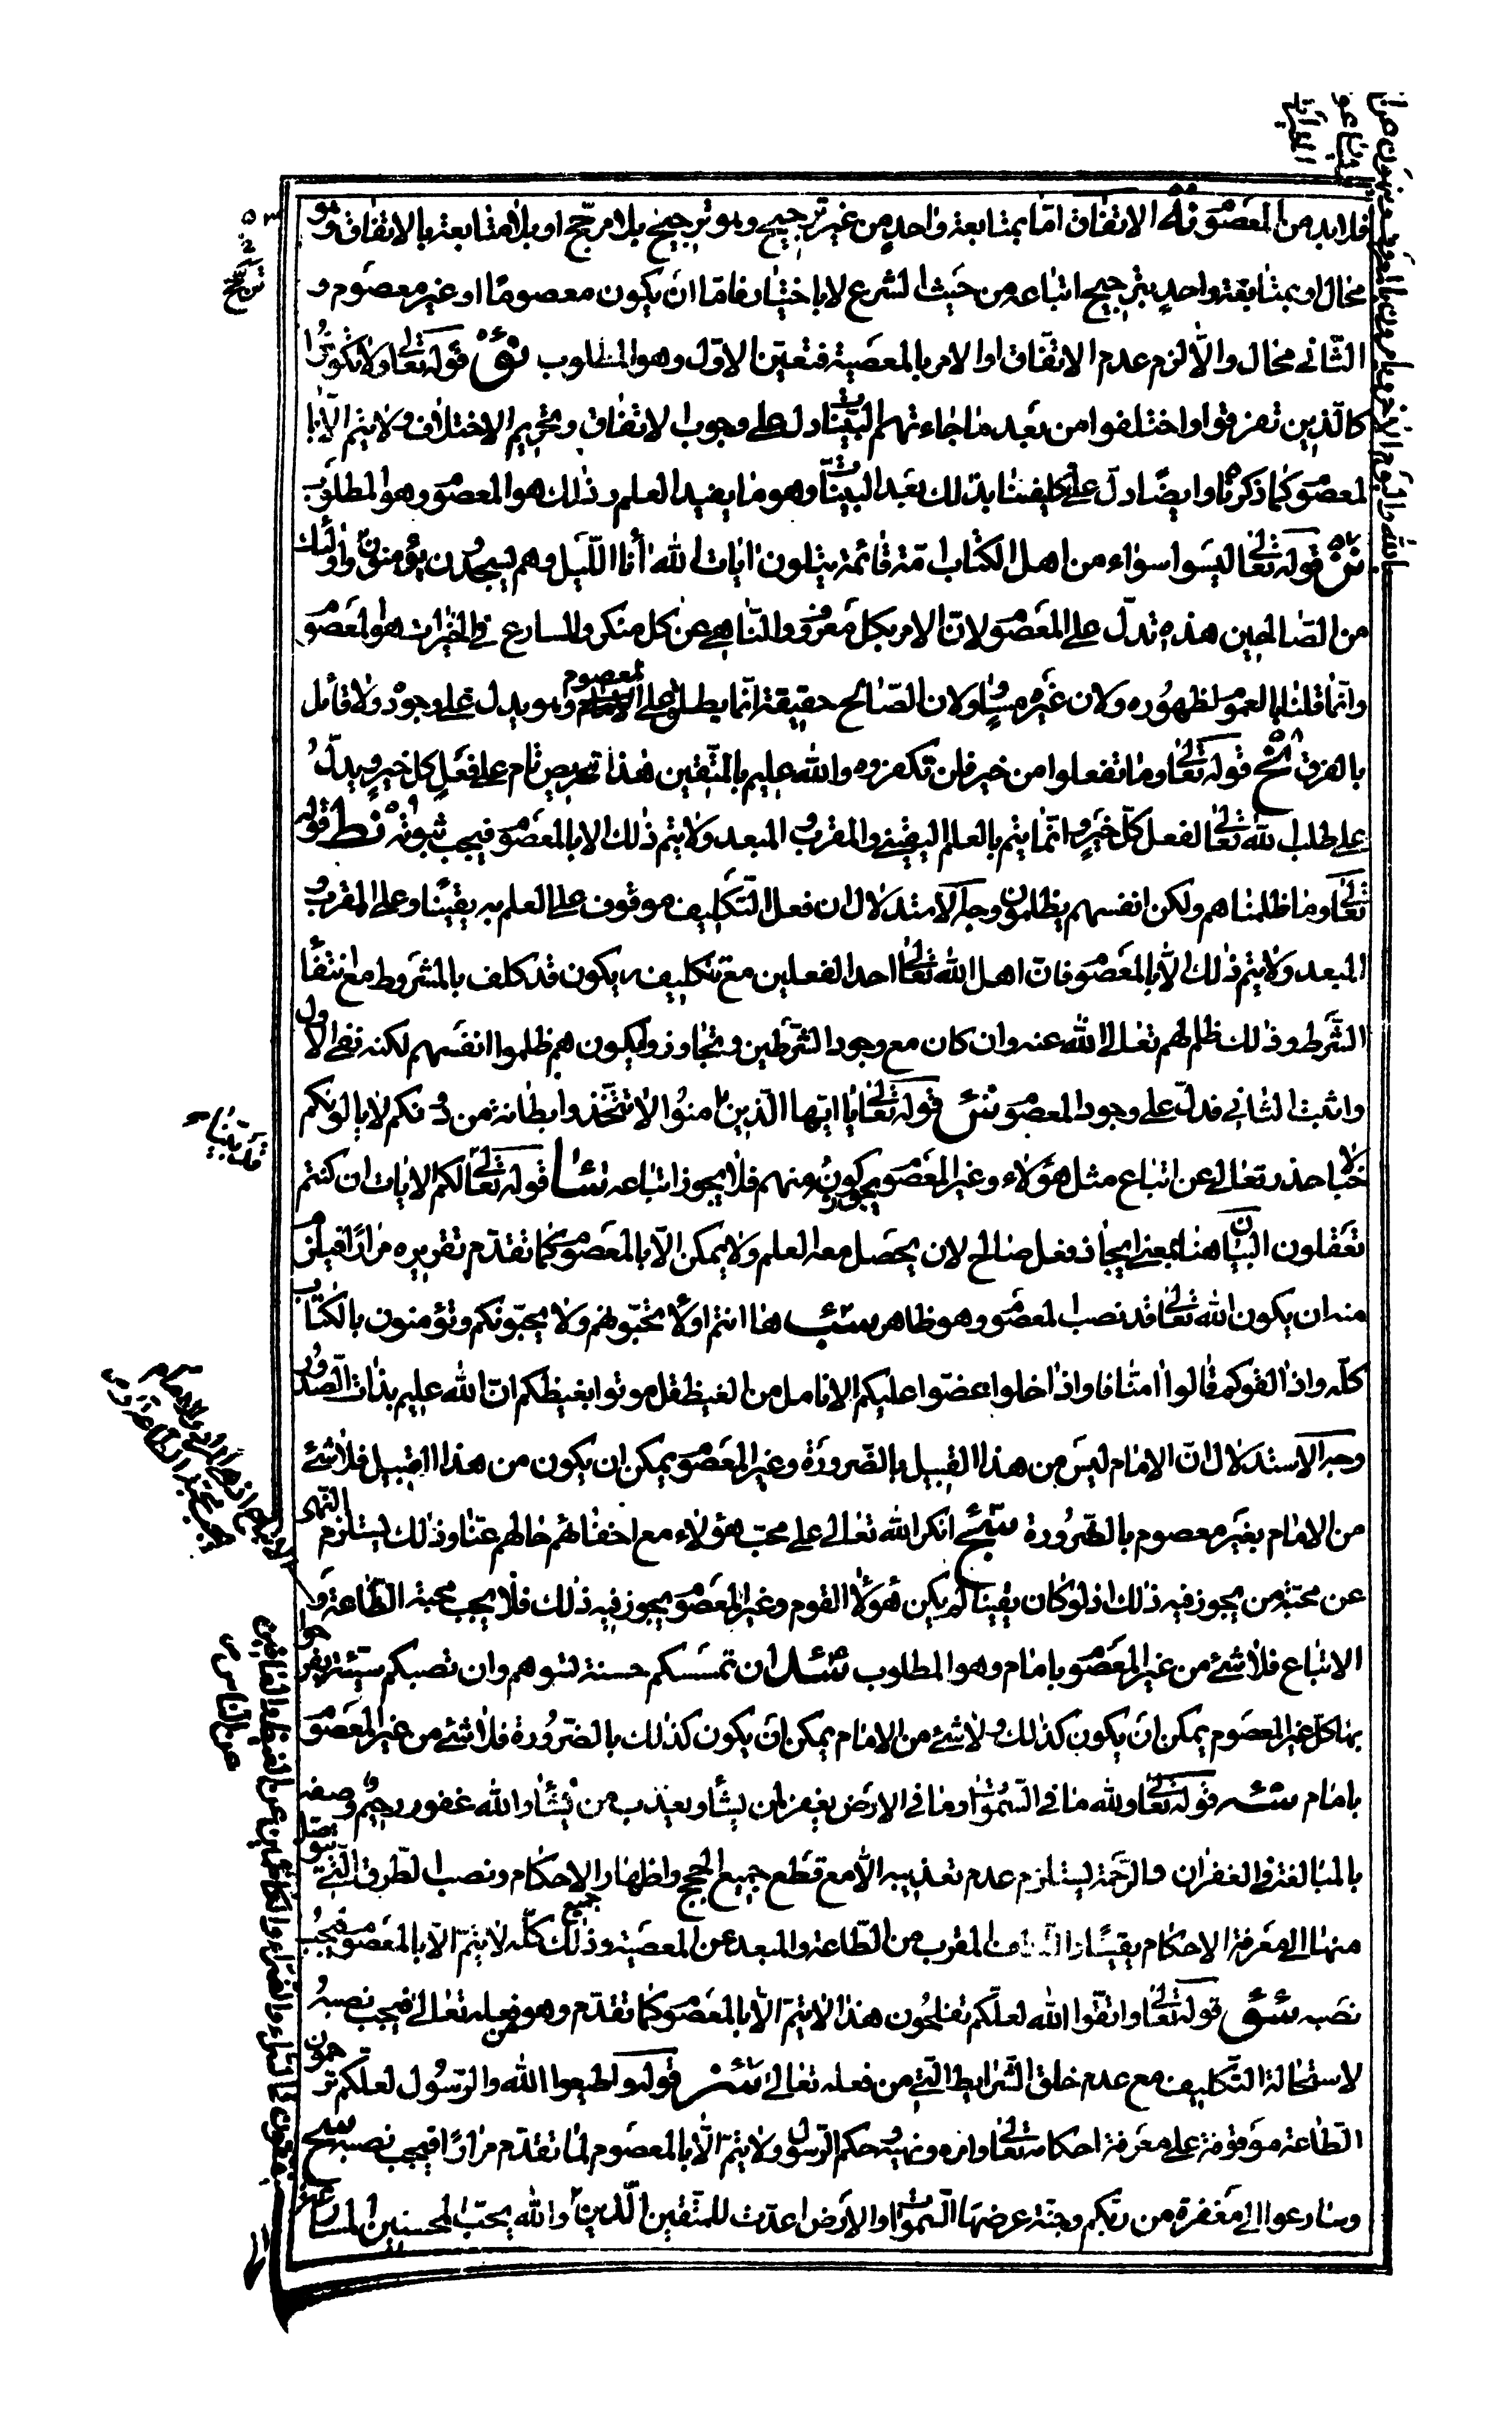 فلا بد من المعصوم نه الاتفاق امّا بمتابعة واحد من غير ترجيح وهو ترجيح بلا مرجّح او بلا متابعة بالاتفاق وهو
محال او بمتابعة واحد بترجيح اتباعه من حيث الشرع لا باختيار فامّا ان يكون معصومًا او غير معصوم و
الثّانى محال والّا لزم عدم الاتّفاق او الامر بالمعصية فتعيّن الاوّل وهو المطلوب نو قوله تعالى ولا تكونوا
كالّذين تفرقوا واختلفوا من بعد ما جاءتهم البيّنات دل على وجوب الاتفاق وتحريم الاختلاف ولا يتم الّا با
لمعصوم كما ذكرنا وايضًا دلّ على تكليفنا بذلك بعد البيّنات وهو ما يفيد العلم وذلك هو المعصوم وهو المطلوب
نز قوله تعالى ليسوا سواء من اهل الكتاب امّة قائمة يتلون ايات الله اناء اللّيل وهم يسجدون يؤمنون واولئك
من الصّالحين هذه تدلّ على المعصوم لانّ الامر بكل معروف والنّاهى عن كل منكر والمسارع فى الخيرات هو المعصوم
وانّما قلنا بالعموم لظهوره ولان غيره مساو ولان الصّالح حقيقة انّما يطلق على المعصوم وهو يدل على وجوده ولا قائل
بالفرق نح قوله تعالى وما تفعلوا من خير فلن تكفروه والله عليم بالمتّقين هذا تحريص تام على فعل كل خير ويدلّ
على طلب الله تعالى لفعل كلّ خير وانّما يتم بالعلم اليقينى والمقرب والمبعد ولا يتم ذلك الا بالمعصوم فيجب ثبوته نط قوله
تعالى وما ظلمناهم ولكن انفسهم يظلمون وجه الاستدلال ان فعل التّكليف موقوف على العلم به يقينًا وعلى المقرب و
المبعد ولا يتم ذلك الّا بالمعصوم فان اهمل الله تعالى احد الفعلين مع تكليفه يكون قد كلف بالمشروط مع انتفاء
الشّرط وذلك ظلم لهم تعالى الله عنه وان كان مع وجود الشّرطين وتجاوزوا يكون هم ظلموا انفسهم لكنه نفى الاول
واثبت الثانى فدلّ على وجود المعصوم س قوله تعالى يا ايّها الّذين امنوا لا تتّخذوا بطانة من دونكم لا يالونكم
خبالا حذر تعالى عن اتباع مثل هؤلاء وغير المعصوم يجوز كونه منهم فلا يجوز اتباعه سا قوله تعالى لكم الايات ان كنتم
تعقلون البيان هنا بمعنى ايجاد فعل صالح لان يحصل معه العلم ولا يمكن الّا بالمعصوم كما تقدّم تقريره مرارًا فيلزم
منه ان يكون الله تعالى قد نصب المعصوم وهو ظاهر سب ها انتم اولاء تحبّونهم ولا يحبّونكم وتؤمنون بالكتاب
كلّه واذا لقوكم قالوا امنّا واذا خلوا عضّوا عليكم الانامل من الغيظ قل موتوا بغيظكم انّ الله عليم بذات الصّدور
وجه الاستدلال انّ الامام ليس من هذا القبيل بالضّرورة وغير المعصوم يمكن ان يكون من هذا القبيل فلا شئ
من الامام بغير معصوم بالضّرورة سج انكر الله تعالى على محب هؤلاء مع اخفائهم حالهم عنّا وذلك يستلزم النّهى
عن محبّة من يجوز فيه ذلك اذ لو كان يقينا لم يكن هؤلاء القوم وغير المعصوم يجوز فيه ذلك فلا يجب محبة الطّاعة و
الاتباع فلا شئ من غير المعصوم بامام وهو المطلوب سد ان تمسسكم حسنة تسوهم وان تصبكم سيّئة يفرحوا
بها كلّ غير المعصوم يمكن ان يكون كذلك ولا شئ من الامام يمكن ان يكون كذلك بالضّرورة فلا شئ من غير المعصوم
بامام سه قوله تعالى ولله ما فى السّموات وما فى الارض يغفر لمن يشاء ويعذب من يشاء والله غفور رحيم وصفه
بالمبالغة فى الغفران والرّحمة يستلزم عدم تعذيبه الّا مع قطع جميع الحجج واظهار الاحكام ونصب الطّرق الّتى يتوصّل
منها الى معرفة الاحكام يقينًا المقرب من الطّاعة والمبعد عن المعصية وذلك جميع كلّه لا يتمّ الّا بالمعصوم فيجب
نصبه سو قوله تعالى واتّقوا الله لعلّكم تفلحون هذا لا يتمّ الّا بالمعصوم كما تقدّم وهو من فعله تعالى فيجب نصبه
لاستحالة التّكليف مع عدم خلق الشّرايط الّتى من فعله تعالى سز قوله واطيعوا الله والرّسول لعلّكم ترحمون
الطّاعة موقوفة على معرفة احكامه تعالى واوامره ونهيه وحكم الرّسول ولا يتمّ الّا بالمعصوم لما تقدّم مرارًا فيجب نصبه سح
وسارعوا الى مغفرة من ربّكم وجنّة عرضها السّموات والارض اعدّت للمتّقين الّذين والله يحبّ المحسنين المسارعة
بالله واليوم الاخر ويامرون بالمعروف وينهون عن المنكر
ينفقون فى السّرّاء والضّرّاء والكاظمين الغيظ والعافين
عن النّاس